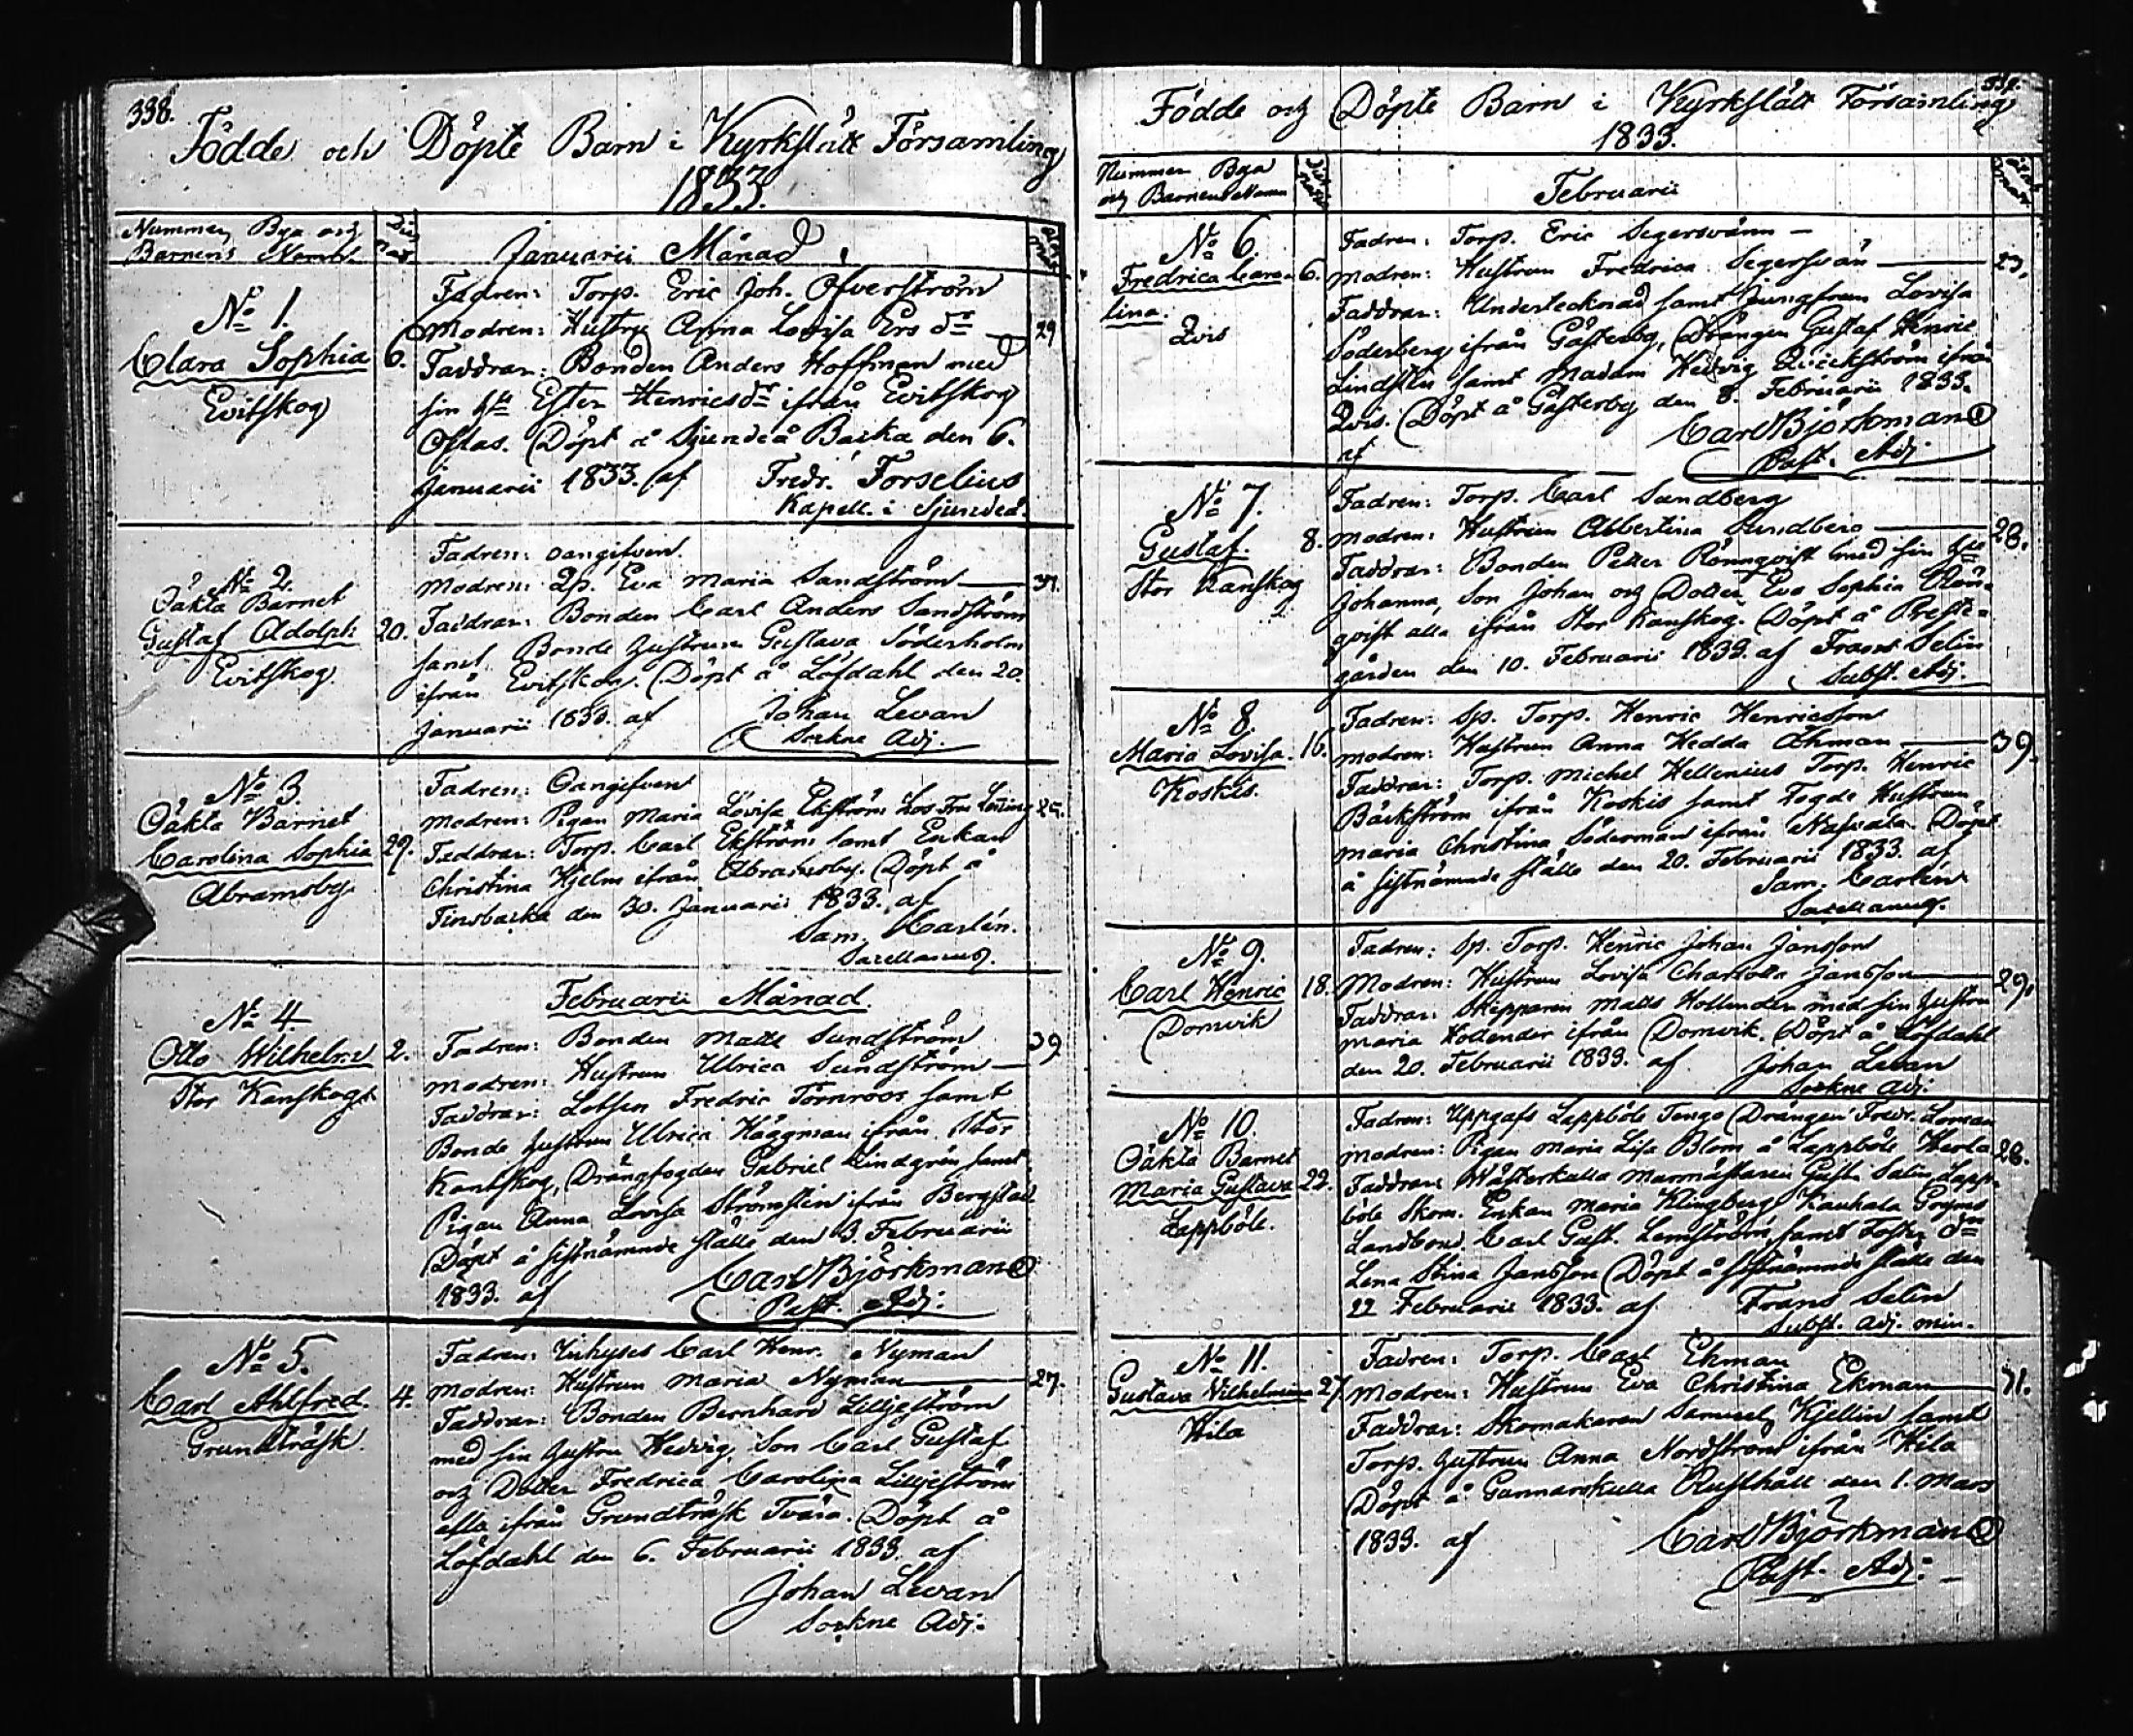 338.
Födde och Döpte Barn i Kyrkslätt Församling
1833.
Nummer, Bya och
Barnens Namn.
Januarii Månad.
No 1.
Clara Sophia
Evitskog
6.
Fadren: Torp. Eric Joh. Öfverström
Modren: Hustru Anna Lovisa Ersdr
29
Faddrar: Bonden Anders Hoffman med
sin hu Ester Henricsdr ifrån Evitskog
Ostas. Döpt å Sjundeå Backa den 6.
Januarii 1833. af Fredr. Forselius
Kapell. i Sjundeå.
No 2.
Oäkta Barnet
Gustaf Adolph
Evitskog.
20.
Fadren: oangifven.
Modren: Qp. Eva Maria Sandström
31.
Faddrar: Bonden Carl Anders Sandström
samt Bonde hustrun Gustava Söderholm
ifrån Evitskog. Döpt å Löfdahl den 20.
Januarii 1833. af Johan Levan
Sockne Adj.
No 3.
Oäkta Barnet
Carolina Sophia
Abramsby.
29.
Fadren: Oangifven
Modren: Pigan Maria Lovisa Ekström
Faddrar: Torp. Carl Ekström samt Enkan
Christina Hjelm ifrån Abramsby. Döpt å
Finsbacka den 30. Januarii 1833. af
Sam. Carlén.
Sacellanus.
Februarii Månad.
No 4
Otto Wilhelm
Stor Kanskog
2.
Fadren: Bonden Matts Sundström
Modren: Hustrun Ulrica Sundström
39
Faddrar: Lotsen Fredric Törnroos samt
Bonde hustrun Ulrica Häggman ifrån Stor
Kanskog, Drängfogden Gabriel Lindgrén samt
Pigan Anna Lovisa Strömstén ifrån Bergstad
Döpt å sistnämnde ställe den 3. Februarii
1833. af Carl Björkman
Past. Adj.
No 5.
Carl Ahlfred.
Grundträsk.
4.
Fadren: Inhyses Carl Henr. Nyman
Modren: Hustrun Maria Nyman
27.
Faddrar: Bonden Bernhard Liljeström
med sin hustru Hedvig, Son Carl Gustaf
och Dotter Fredrica Carolina Liljeström
alla ifrån Grundträsk Tvära. Döpt å
Löfdahl den 6. Februarii 1833. af
Johan Levan
Sockne Adj.
Födde och Döpte Barn i Kyrkslätt Församling
1833.
Nummer Bya
och Barnens Namn
Februarii
No 6.
Fredrica Caro-
lina.
Qvis
6.
Fadren: Torp. Eric Segersvänn
Modren: Hustrun Fredrica Segersvän
23.
Faddrar: Undertecknad samt Jungfrun Lovisa
Söderberg ifrån Gästerby, Drängen Gustaf Henric
Lindstén samt Madam Hedvig Qvickström ifrån
Qvis. Döpt å Gästerby den 8. Februarii 1833.
af Carl Björkman
Past. Adj
No 7.
Gustaf.
Stor Kanskog
8.
Fadren: Torp. Carl Sandberg
Modren: Hustrun Albertina Sundberg
28.
Faddrar: Bonden Petter Rönnqvist med sin hu
Johanna, Son Johan och Dotter Eva Sophia Rön-
qvist alla ifrån Stor Kanskog. Döpt å Preste-
gården den 10. Februarii 1833. af Frans Selin
Subst. Adj.
No 8.
Maria Lovisa.
Koskis.
16.
Fadren: Sp. Torp. Henric Henricsson
Modren: Hustrun Anna Hedda Öhman
39.
Faddrar: Torp. Michel Hellenius Torp. Henric
Bäckström ifrån Koskis samt Fogde Hustrun
Maria Christina Söderman ifrån Navala. Döpt
å sistnämnde ställe den 20. Februarii 1833. af
Sam. Carlén
Sacellanus.
No 9.
Carl Henric
Domvik
18.
Fadren: Sp. Torp. Henric Johan Jansson
Modren: Hustrun Lovisa Charlotta Jansson
29.
Faddrar: Skepparen Matts Hollender med sin hustru
Maria Hollender ifrån Domvik. Döpt å Löfdahl
den 20. Februarii 1833. af Johan Levan
Sockne Adj.
No 10.
Oäkta Barnet
Maria Gustava
Lappböle.
22.
Fadren: Uppgafs Lappböle Tengo Drängen Fredr. Loman
Modren: Pigan Maria Lisa Blom å Lappböle Herla
28.
Faddrar: Wästerkulla Murmästaren Gust. Salin Lapp-
böle Skom. Enkan Maria Klingberg Kauhala Gryms
Landbond. Carl Gust. Lemström, samt Foster dr
Lena Stina Jansson Döpt å sistnämnde ställe den
22 Februarii 1833. af Frans Selin
Subst. Adj. min.
No 11.
Gustava Vilhelmina
Hila
27
Fadren: Torp. Carl Ekman
Modren: Hustrun Eva Christina Ekman
31.
Faddrar: Skomakaren Samuel Kjellin samt
Torp. hustrun Anna Nordström ifrån Hila
Döpt å Gunnarskulla Rusthåll den 1. Mars
1833. af Carl Björkman
Past. Adj: